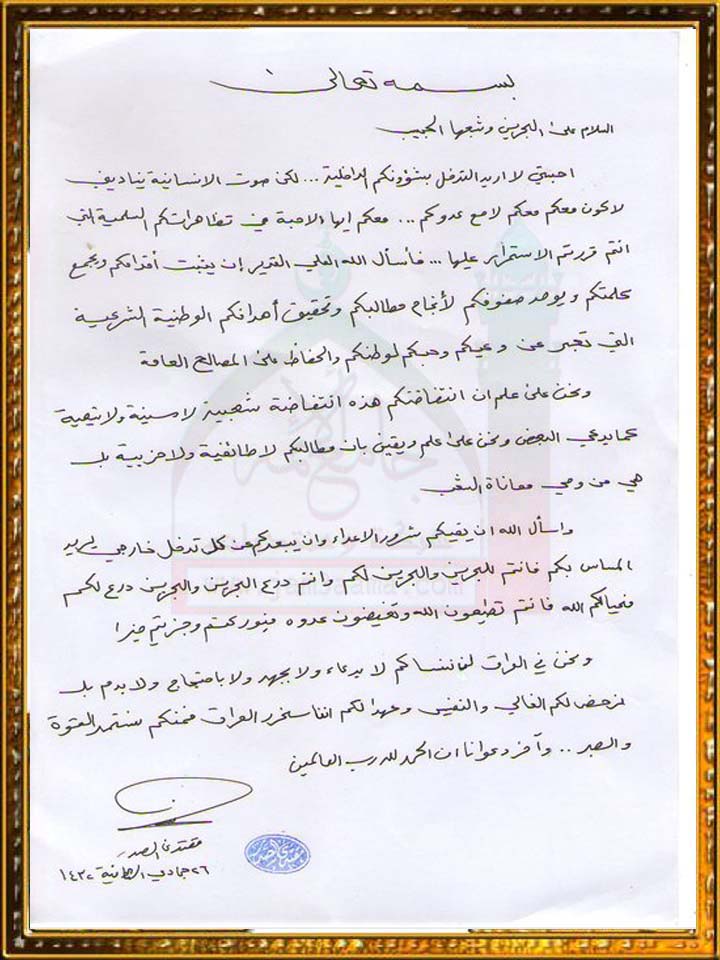 بسمه تعالى
السلام على البحرين وشعبها الحبيب
احبتي لا اريد التدخل بشؤونكم الداخلية ... لكن صوت الانسانية يناديني
لاكون معكم معكم لا مع عدوكم ... معكم ايها الاحبة في تظاهراتكم السلمية التي
انتم قررتم الاستمرار عليها ... فأسأل الله العلي القدير ان يثبت أقدامكم ويجمع
كلمتكم ويوحد صفوفكم لأنجام مطالبكم وتحقيق أهدافكم الوطنية الشرعية
التي تعبر عن وعيكم وحبكم لوطنكم والحفاظ على المصالح العامة
ونحن على علم ان انتفاضتكم هذه انتفاضة شعبية لا سنية ولا شيعية
كما يدعي البعض ونحن على علم ويقين بان مطالبكم لا طائفية ولا حزبية بل
هي من وحي معاناة الشعب
واسأل الله ان يقيكم شرور الاعداء وان يبعدكم عن كل تدخل خارجي يريد
المساس بكم فانتم للبحرين والبحرين لكم وانتم درع البحرين والبحرين درع لكم
فحياكم الله فانتم تطيعون الله وتغيضون عدوه فبوركتم وجزيتم خيرا
ونحن في العراق لن ننساكم لا بدعاء ولا بجهد ولا باحتجاج ولا بدم بل
نرخص لكم الغالي والنفيس وعهدا لكم اننا سنحرر العراق فمنكم نستمد القوة
والصبر .. وآخر دعوانا ان الحمد لله رب العالمين
مقتدى الصدر
٢٦ جمادي الثانية ١٤٣٢
جامع الأئمة
www.jam3aama.com